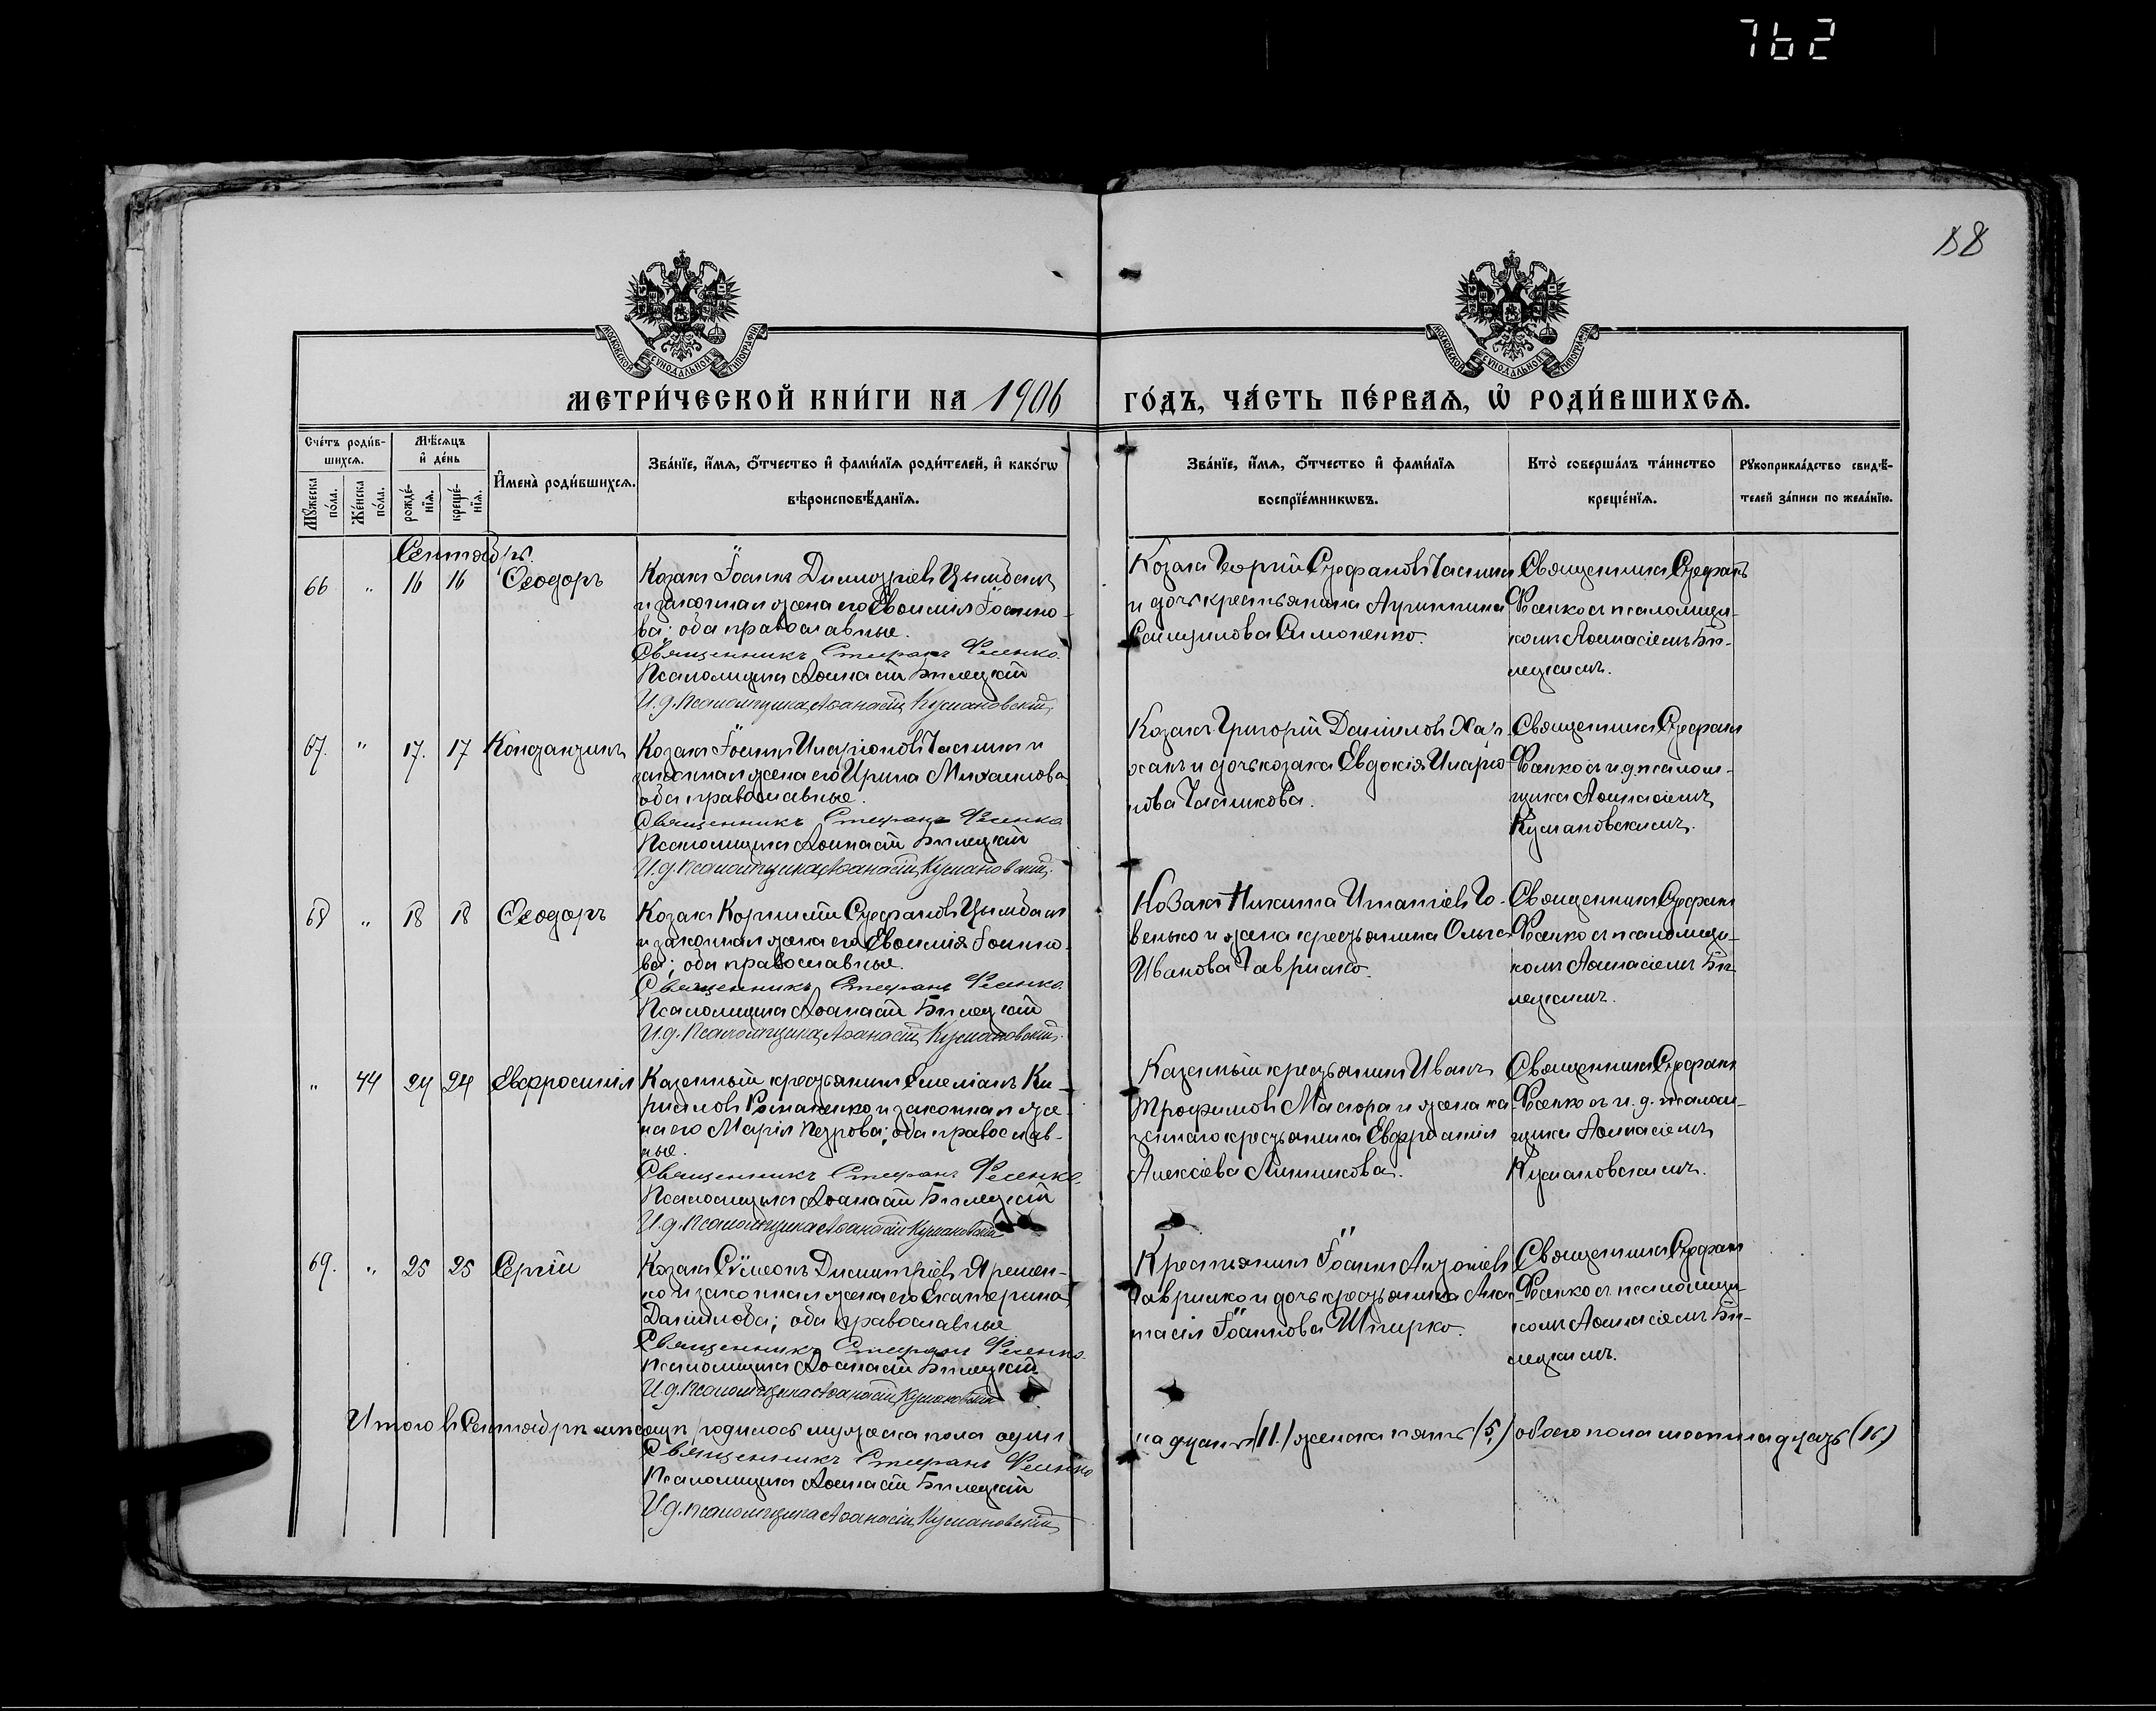 762
88
МОСКОВСКОЙ СѴНОДАЛЬНОЙ ТИПОГРАФІИ
МОСКОВСКОЙ СѴНОДАЛЬНОЙ ТИПОГРАФІИ
МЕТРИ́ЧЕСКОЙ КНИ́ГИ НА 1906 ГО́ДЪ, ЧА́СТЬ ПЕ́РВАѦ, Ѡ҆ РОДИ́ВШИХСѦ.
Сче́тъ роди́в-
шихсѧ.
Мꙋ́жеска по́ла.
Же́нска по́ла.
Мѣ́сѧцъ
и҆ де́нь
рожде́-нїѧ.
креще́-нїѧ.
И҆мена̀ роди́вшихсѧ.
Зва́нїе, и҆́мѧ, ѻ҆́тчество и҆ фами́лїѧ роди́телей, и҆ како́гѡ
вѣроисповѣ́данїѧ.
Зва́нїе, и҆́мѧ, ѻ҆́тчество и҆ фами́лїѧ
воспрїе́мникѡвъ.
Кто̀ соверша́лъ та́инство
креще́нїѧ.
Рꙋкоприкла́дство свидѣ́-
телей за́писи по жела́нїю.
Сентябрь.
66 " 16 16 Ѳеодоръ
Козакъ Іоаннъ Димитріевъ Цымбалъ
и законная жена его Евѳимія Іоанно-
ва; оба православные.
Священникъ Стефанъ Фесенко.
Псаломщикъ Аѳанасій Билецкій
И.д. Псаломщика Аѳанасій Кусмановскій
Козакъ Георгій Стефановъ Часникъ
и дочь крестьянина Агриппина
Симоненко.
Священникъ Стефанъ
Фесенко съ псаломщи-
комъ Аѳанасіемъ Би-
лецкимъ.
67. " 17. 17 Константинъ
Козакъ Іоаннъ Иларіоновъ Часникъ и
законная жена его Ирина Михаилова
оба православные.
Священникъ Стефанъ Фесенко
Псаломщикъ Аѳанасій Билецкій
И.д. Псаломщика Аѳанасій Кусмановскій.
Козакъ Григорій Даніиловъ
и дочь козака Евдокія Иларіо-
нова Часникова.
Священникъ Стефанъ
Фесенко съ и.д. псалом-
щика Аѳанасіемъ
Кусмановскимъ.
68 " 18 18 Ѳеодоръ
Козакъ Корнилій Стефановъ Цымбалъ
и законная жена его Евѳимія Іоанно-
ва; оба православные.
Священникъ Стефанъ Фесенко.
Псаломщикъ Аѳанасій Билецкій
И.д. Псаломщика Аѳанасій Кусмановскій.
Козакъ Никита Игнатіевъ Го-
венько и жена крестьянина Ольга
Иванова Гаврилко.
Священникъ Стефанъ
Фесенко съ псаломщи-
комъ Аѳанасіемъ Би-
лецкимъ.
" 44 24 24 Евфросинія
Казенный крестьянинъ Емеліанъ Ки-
рилловъ Романенко и законная же-
на его Марія Петрова; оба православ-
ные.
Священникъ Стефанъ Фесенко.
Псаломщикъ Аѳанасій Билецкій
И.д. Псаломщика Аѳанасій Кусмановскій
Казенный крестьянинъ Иванъ
Трофимовъ Масюра и жена ка-
зеннаго крестьянина Евфросинія
Алексіева Линникова.
Священникъ Стефанъ
Фесенко съ и.д. псалом-
щика Аѳанасіемъ
Кусмановскимъ.
69. " 25 25 Сергій
Козакъ Сѵмеонъ Димитріевъ Яремен-
ко и законная жена его Екатерина
Даніилова; оба православные
Священникъ Стефанъ Фесенко.
Псаломщикъ Аѳанасій Билецкій
И.д. Псаломщика Аѳанасій Кусмановскій
Крестьянинъ Іоаннъ Антоніевъ
Гаврилко и дочь крестьянина Анас-
тасія Іоаннова Шпирко.
Священникъ Стефанъ
Фесенко съ псаломщи-
комъ Аѳанасіемъ Би-
лецкимъ.
Итого въ Сентябрѣ мѣсяцѣ родилось мужеска пола один-надцать (11.) женска пять (5.) обоего пола шестнадцать (16)
Священникъ Стефанъ Фесенко
Псаломщикъ Аѳанасій Билецкій
И.д. псаломщика Аѳанасій Кусмановскій